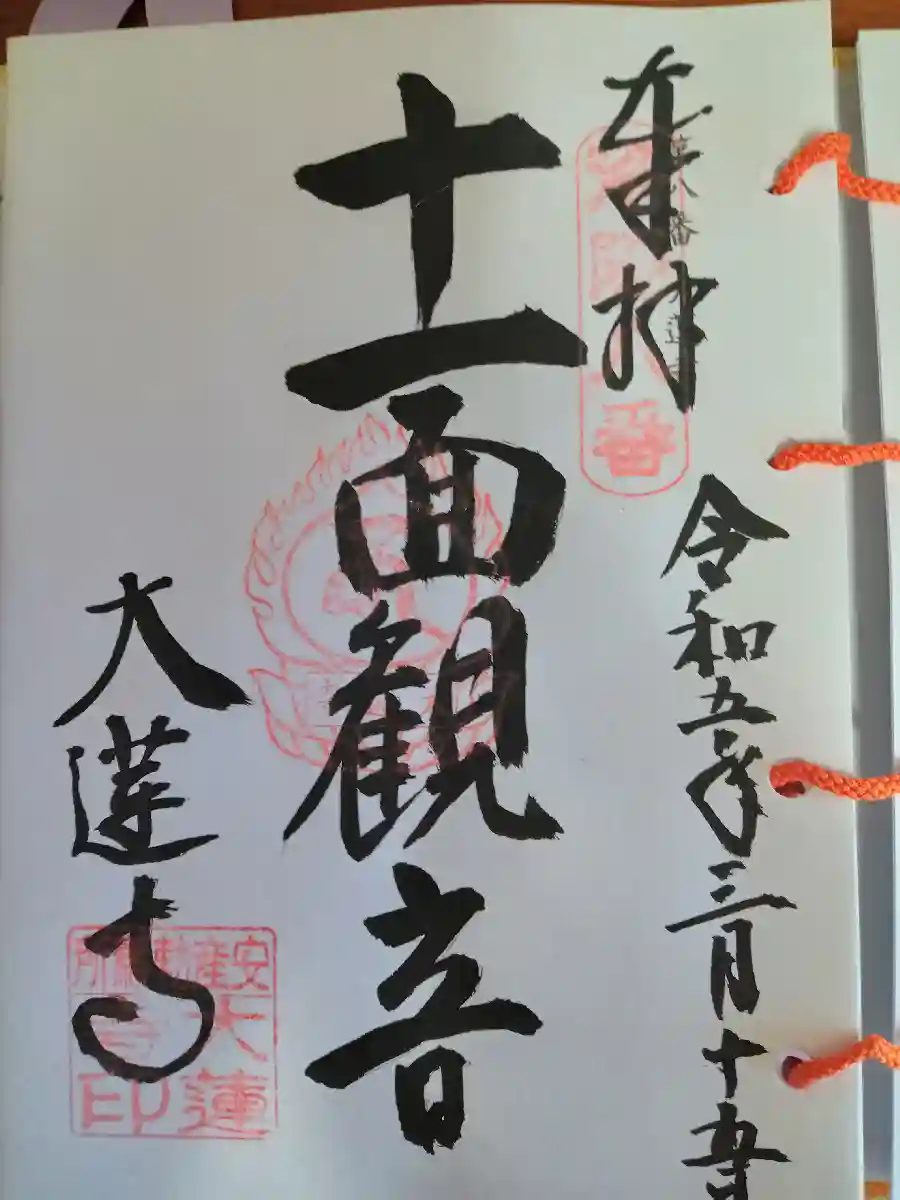 奉拝
令和五年三月十五
番
十一面観音
大蓮寺
安産祈願所
大蓮寺印